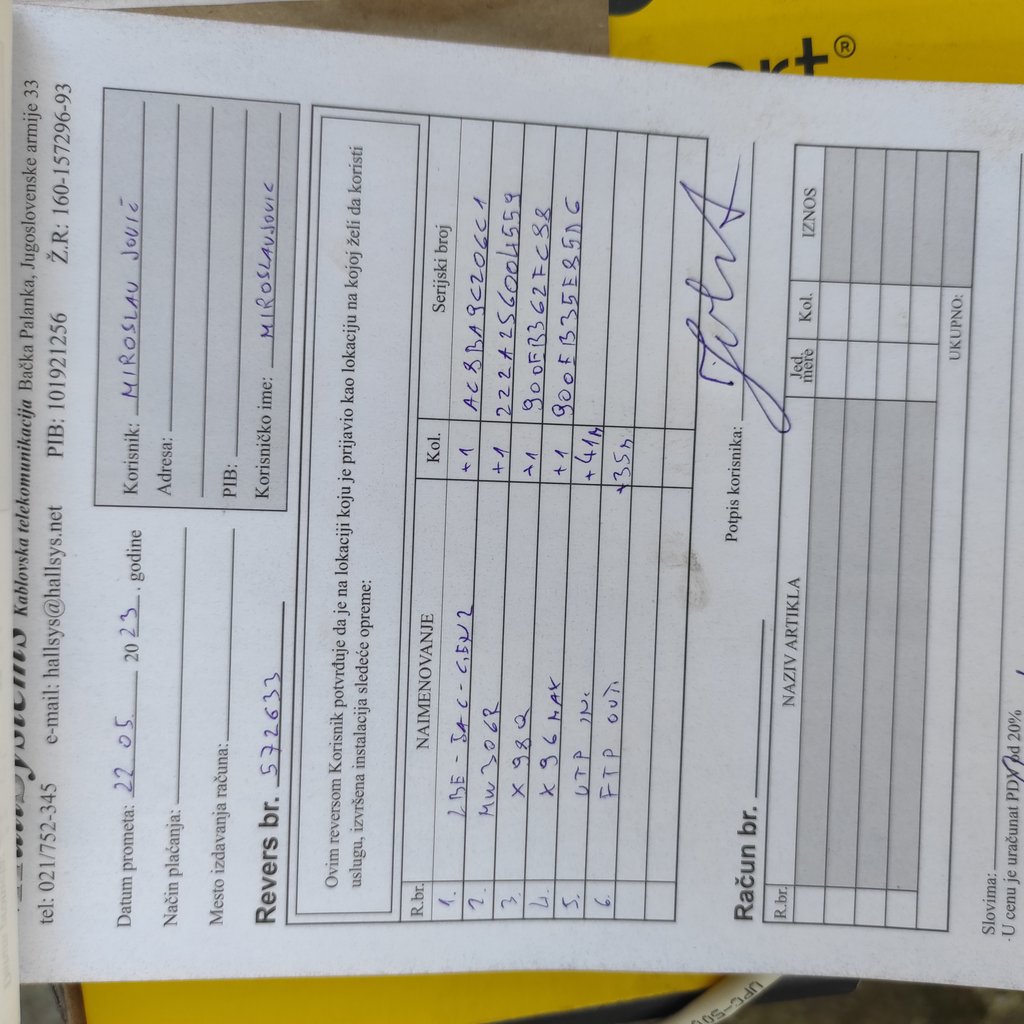 Kablovska telekomunikacija Bačka Palanka, Jugoslovenske armije 33
tel: 021/752-345 e-mail: hallsys@hallsys.net PIB: 101921256 Ž.R: 160-157296-93
Datum prometa: 22 05 2023. godine
Način plaćanja:
Mesto izdavanja računa:
Revers br. 572633
Korisnik: MIROSLAV JOVIĆ
Adresa:
PIB:
Korisničko ime: MIROSLAVJOVIC
Ovim reversom Korisnik potvrđuje da je na lokaciji koju je prijavio kao lokaciju na kojoj želi da koristi
uslugu, izvršena instalacija sledeće opreme:
R.br. NAIMENOVANJE Kol. Serijski broj
1. LBE-5AC-GEN2 +1 AC8BA9C206C1
2. MW306R +1 222A256004559
3. X98Q +1 900EB362FC88
4. X96 MAX +1 900EB35E85D6
5. UTP IN. +41m
6. FTP OUT. +35m
Potpis korisnika:
Račun br.
R.br. NAZIV ARTIKLA Jed. mere Kol. IZNOS
UKUPNO:
Slovima:
·U cenu je uračunat PDV od 20%
rt+®